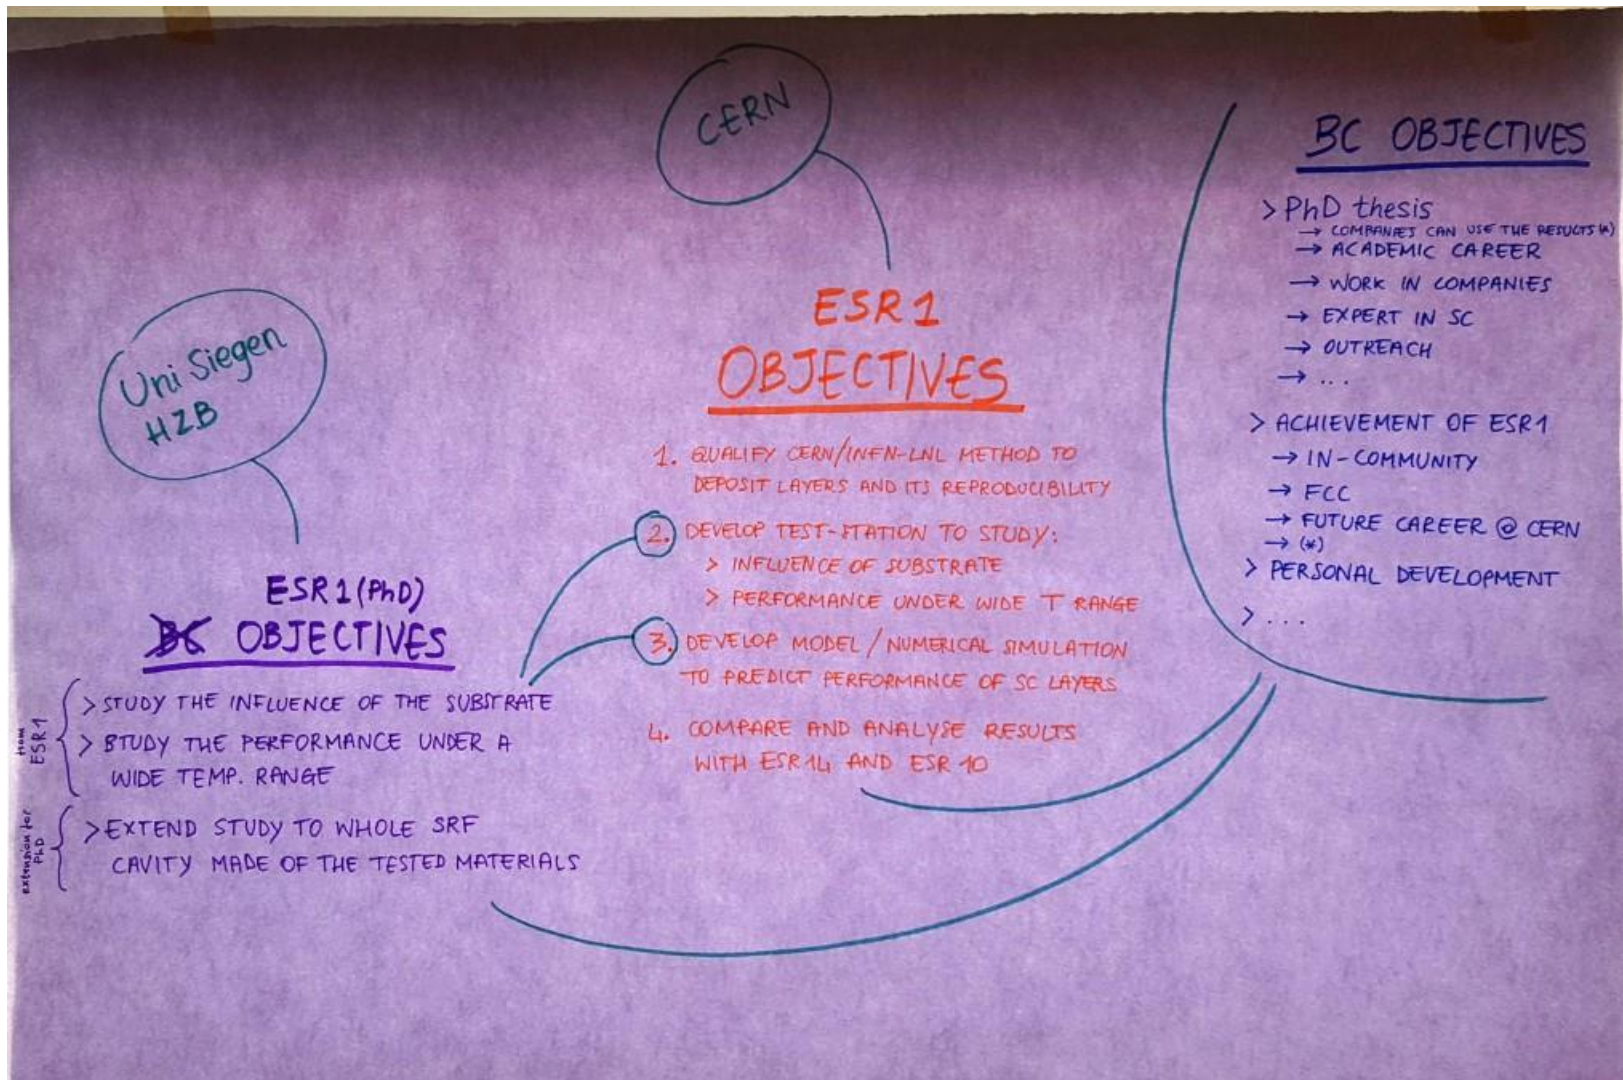 CERN
Uni Siegen
HZB
ESR1 (PhD)
BC OBJECTIVES
from
ESR1
> STUDY THE INFLUENCE OF THE SUBSTRATE
> STUDY THE PERFORMANCE UNDER A
WIDE TEMP. RANGE
extension for
PhD
> EXTEND STUDY TO WHOLE SRF
CAVITY MADE OF THE TESTED MATERIALS
ESR1
OBJECTIVES
1. QUALIFY CERN/INFN-LNL METHOD TO
DEPOSIT LAYERS AND ITS REPRODUCIBILITY
2. DEVELOP TEST-STATION TO STUDY:
> INFLUENCE OF SUBSTRATE
> PERFORMANCE UNDER WIDE T RANGE
3. DEVELOP MODEL / NUMERICAL SIMULATION
TO PREDICT PERFORMANCE OF SC LAYERS
4. COMPARE AND ANALYSE RESULTS
WITH ESR14 AND ESR 10
BC OBJECTIVES
> PhD thesis
→ COMPANIES CAN USE THE RESULTS (*)
→ ACADEMIC CAREER
→ WORK IN COMPANIES
→ EXPERT IN SC
→ OUTREACH
→ ...
> ACHIEVEMENT OF ESR1
→ IN-COMMUNITY
→ FCC
→ FUTURE CAREER @ CERN
→ (*)
> PERSONAL DEVELOPMENT
> ...